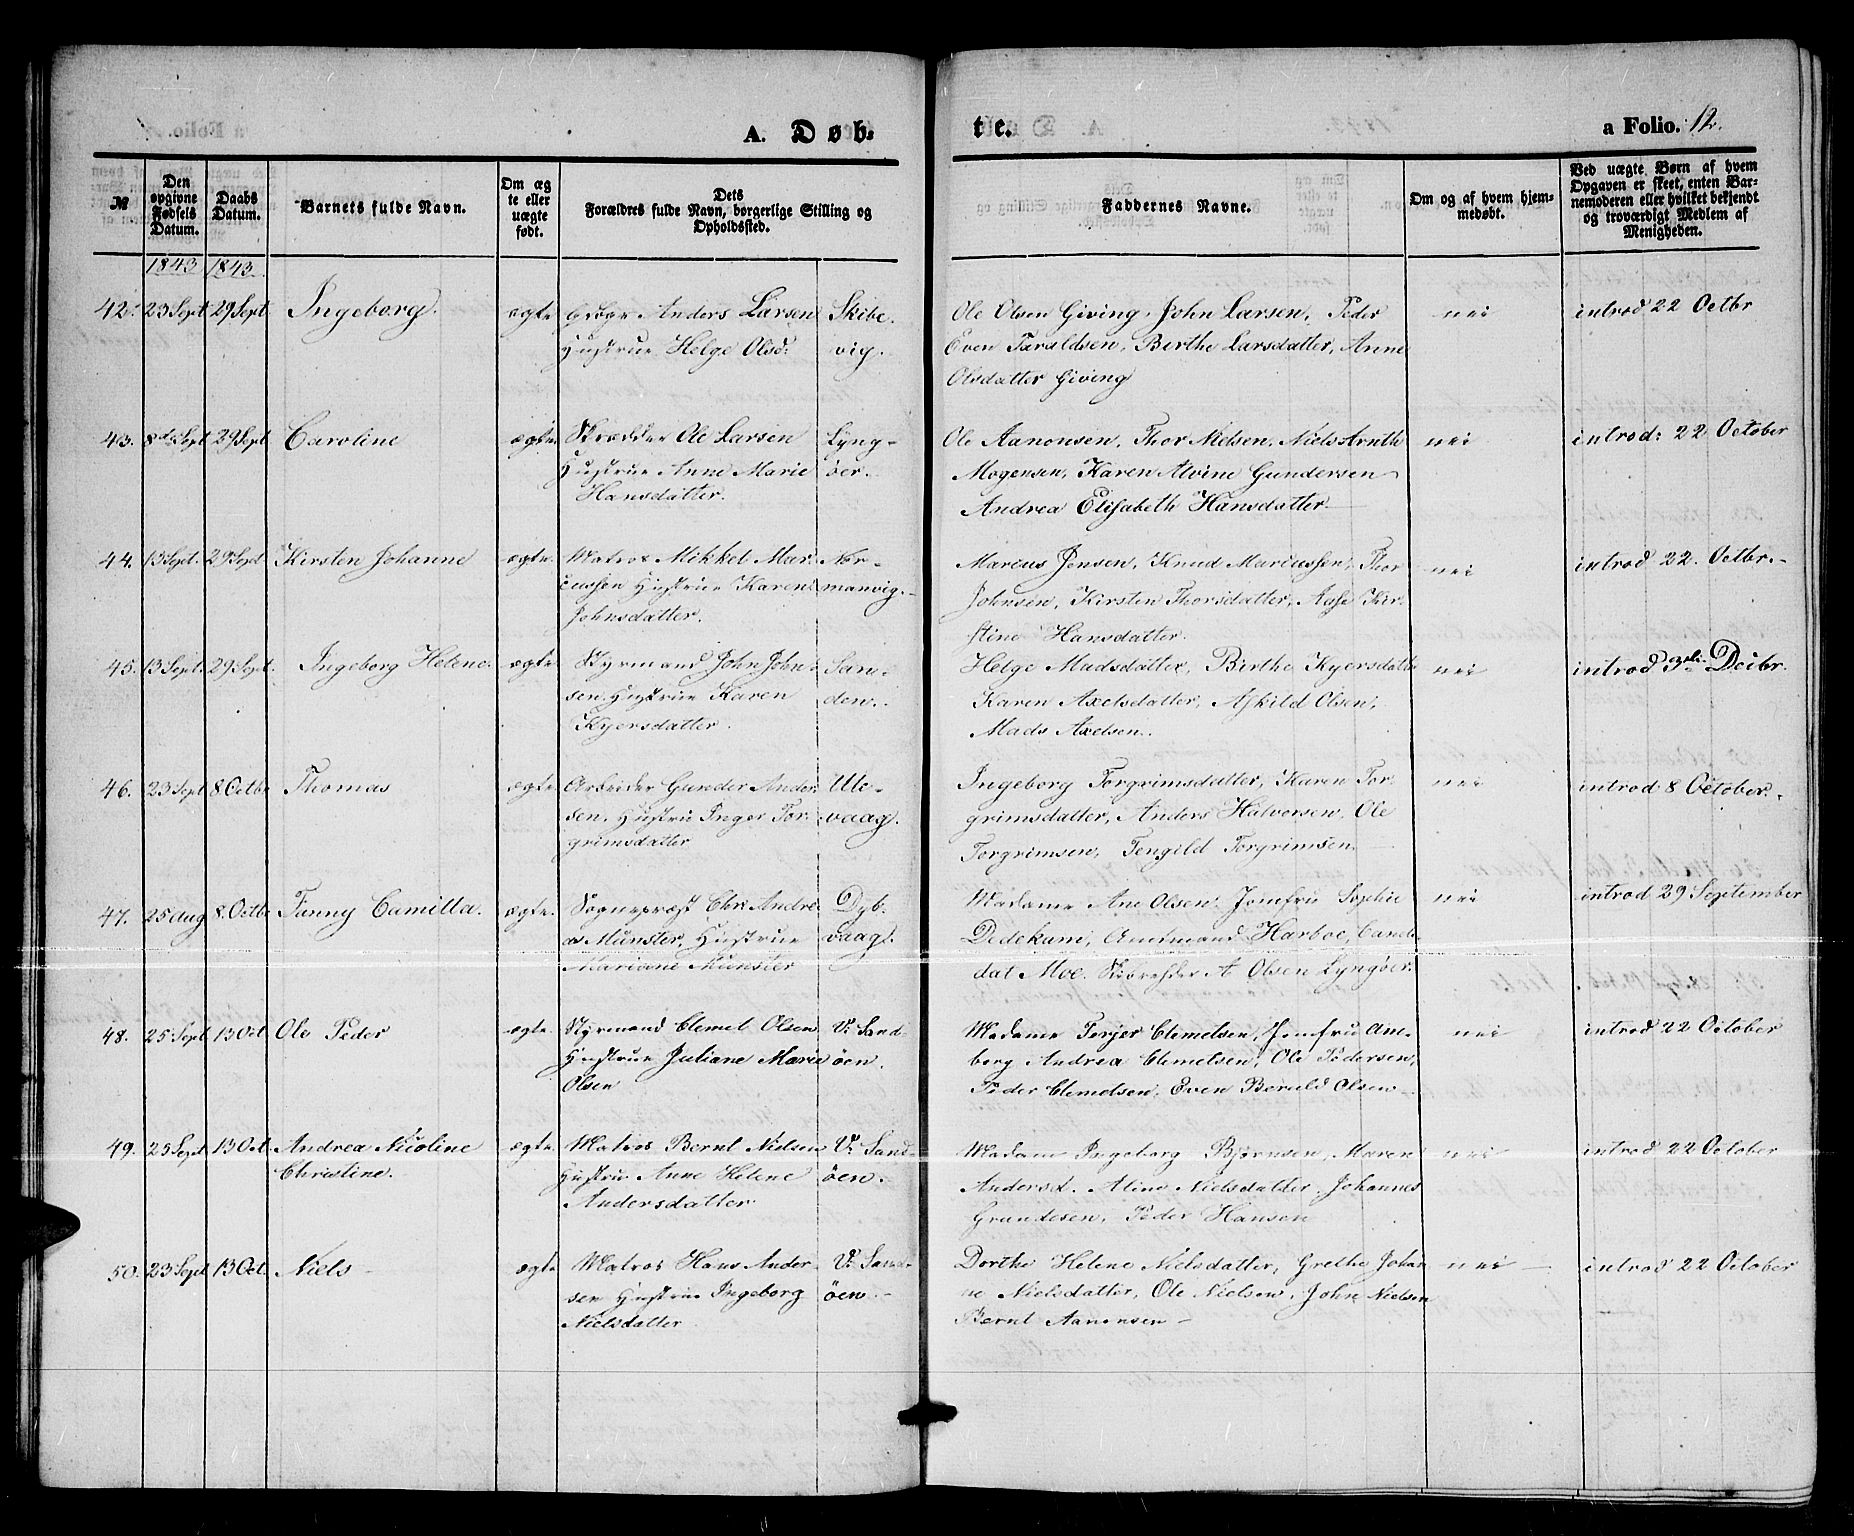 A. Døb-
te.
a Folio. 12.
№
Den opgivne Fødsels Datum.
Daabs Datum.
Barnets fulde Navn.
Om ægte eller uægte født.
Dets Forældres fulde Navn, borgerlige Stilling og Opholdssted.
Faddernes Navne.
Om og af hvem hjemmedøbt.
Ved uægte Børn af hvem Opgaven er skeet, enten Barnemoderen eller hvilket bekjendt og troværdigt Medlem af Menigheden.
1843 1843
42. 23 Sept 29 Sept. Ingeborg. ægte Anders Larsen Skibe- Ole Olsen Giving, John Larsen, Peder nei introd 22 Octbr
Hustrue Helge Olsd: vig. Even Taraldsen, Birthe Larsdatter, Anne
Olsdatter Giving
43. 8de Sept 29 Sept Caroline ægte. Skrædder Ole Larsen Lyng- Ole Aanonsen, Thor Nielsen, Niels Arnth nei introd: 22 October
Hustrue Anne Marie öer. Mogensen, Karen Alvine Gundersen
Hansdatter. Andrea Elisabeth Hansdatter
44. 13 Sept. 29 Sept Kirsten Johanne ægte. Matros Mikkel Mar- Nor- Marcus Jensen, Knud Marcussen, Thor nei introd 22. Octbr.
cussen Hustrue Karen manvig. Johnsen, Kirsten Thorsdatter, Aase Kir-
Johnsdatter. stine Hansdatter.
45. 13 Sept. 29 Sept. Ingeborg Helene. ægte Styrmand John John- San- Helge Madsdatter, Birthe Kyersdatter nei introd 3die Decbr.
sen. Hustrue Karen den. Karen Axelsdatter, Askild Olsen,
Kyersdatter. Mads Axelsen.
46. 23 Sept 8 Octbr Thomas ægte Arbeider Gunder Ander- Ule- Ingeborg Torgrimsdatter, Karen Tor- nei introd 8 October.
sen. Hustru Inger Tor- vaag. grimsdatter, Anders Halvorsen, Ole
grimsdatter Torgrimsen, Tengild Torgrimsen
47. 25 Aug 8. Octbr Fanny Camilla. ægte. Sognepræst Chr: Andre- Dyb- Madame Ane Olsen. Jomfru Sophie nei introd 29 September
as Munster, Hustrue vaag. Dedekam, Amtmand Harboe, Candi-
Mariane Munster dat Moe. Skibsreder A. Olsen Lyngöer.
48. 25 Sept 13 Oct. Ole Peder ægte. Styrmand Clemet Olsen V: Sand- Madame Terjer Clemetsen, Jomfru Am- nei introd 22 October
Hustrue Juliane Marie öen. berg Andrea Clemetsen, Ole Pedersen,
Olsen Peder Clemetsen, Even Beruld Olsen
49. 25 Sept 13 Oct. Andrea Nicoline ægte. Matros Bernt Nielsen V: Sand- Madame Ingeborg Björnsen, Maren nei introd 22 October
Christine. Hustrue Anne Helene öen. Andersd. Aline Nielsdatter, Johannes
Andersdatter Grundesen, Peder Hansen
50. 23 Sept 13 Oct. Niels ægte Matros Hans Ander- V: Sand- Dorthe Helene Nielsdatter, Grethe Johan- nei introd 22 October
sen Hustrue Ingeborg öen. ne Nielsdatter, Ole Nielsen, John Nielsen
Nielsdatter Bernt Aanensen